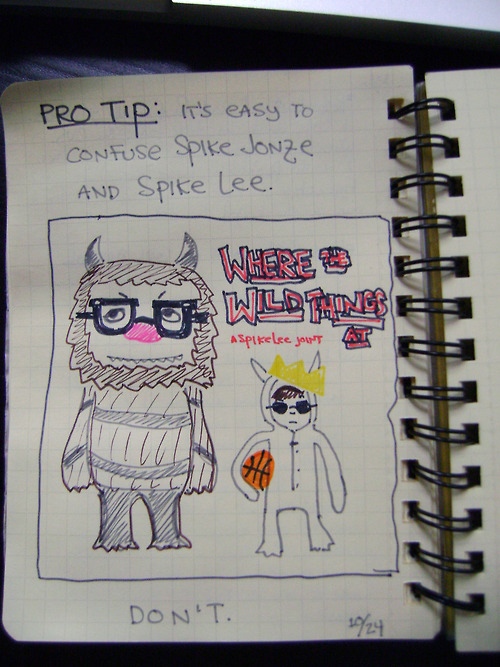 PRO TIP: IT'S EASY TO
CONFUSE SPIKE JONZE
AND SPIKE LEE.
WHERE THE
WILD THINGS
AT
A SPIKE LEE JOINT
DON'T.
10/24